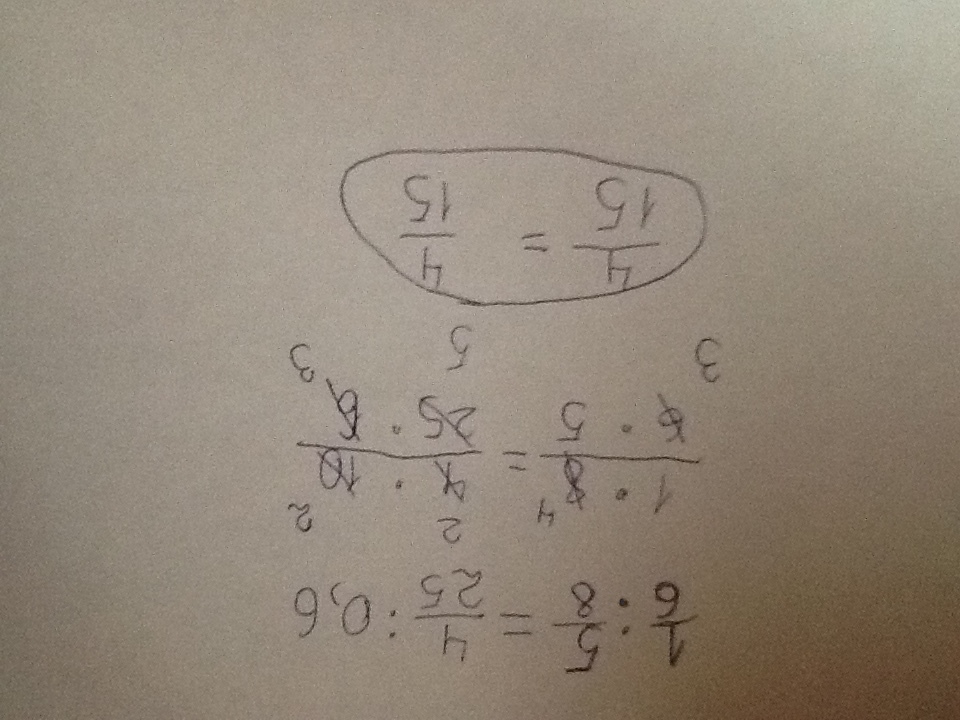 1/6 : 5/8 = 4/25 : 0,6
4 2 2
1 · 8 / 6 · 5 = 4 · 10 / 25 · 6
3 5 3
4/15 = 4/15